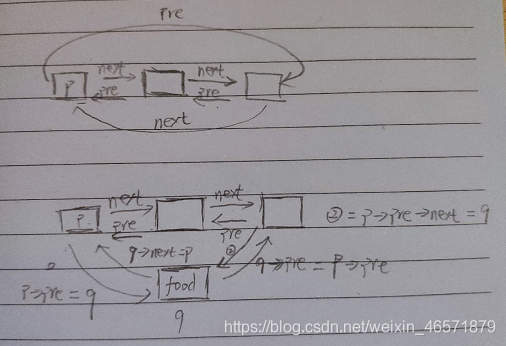 pre
next next
P pre pre
next
next next
P. pre pre ② = P->pre->next = q
q->next=p ②
q->pre = P->pre
P->pre = q food
q
https://blog.csdn.net/weixin_46571879